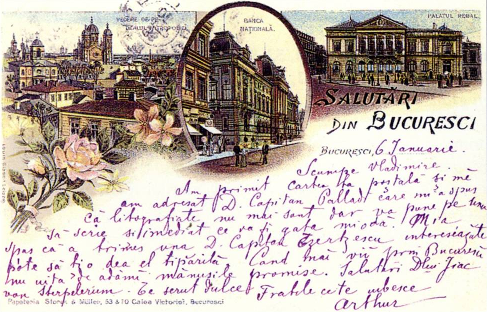 VEDERE DE PE
DEALUL METROPOLIEI
BANCA
NAȚIONALĂ.
PALATUL REGAL.
SALUTĂRI
DIN BUCURESCI
BUCURESCI, 6 Ianuarie.
Scumpe Vladimire
Am primit cartea ta postală si me
am adresat D. Capitan Pallad care mi'a spus
Că litografiate nu mai sunt dar va pune pe una
să scrie si imediat ce va fi gata
Mi'a
spus că a trimes una D. Capitan interesiazăte
pôte să ți'o dea el tipărită Cand mai vii prin Bucuresti
nu uita de adămi mănușile promise. Salutări Dlui
von Te serut dulce Fratele cete iubesce
Arthur
Papeteria Storck & Müller, 53 & 70 Calea Victoriei, Bucuresci